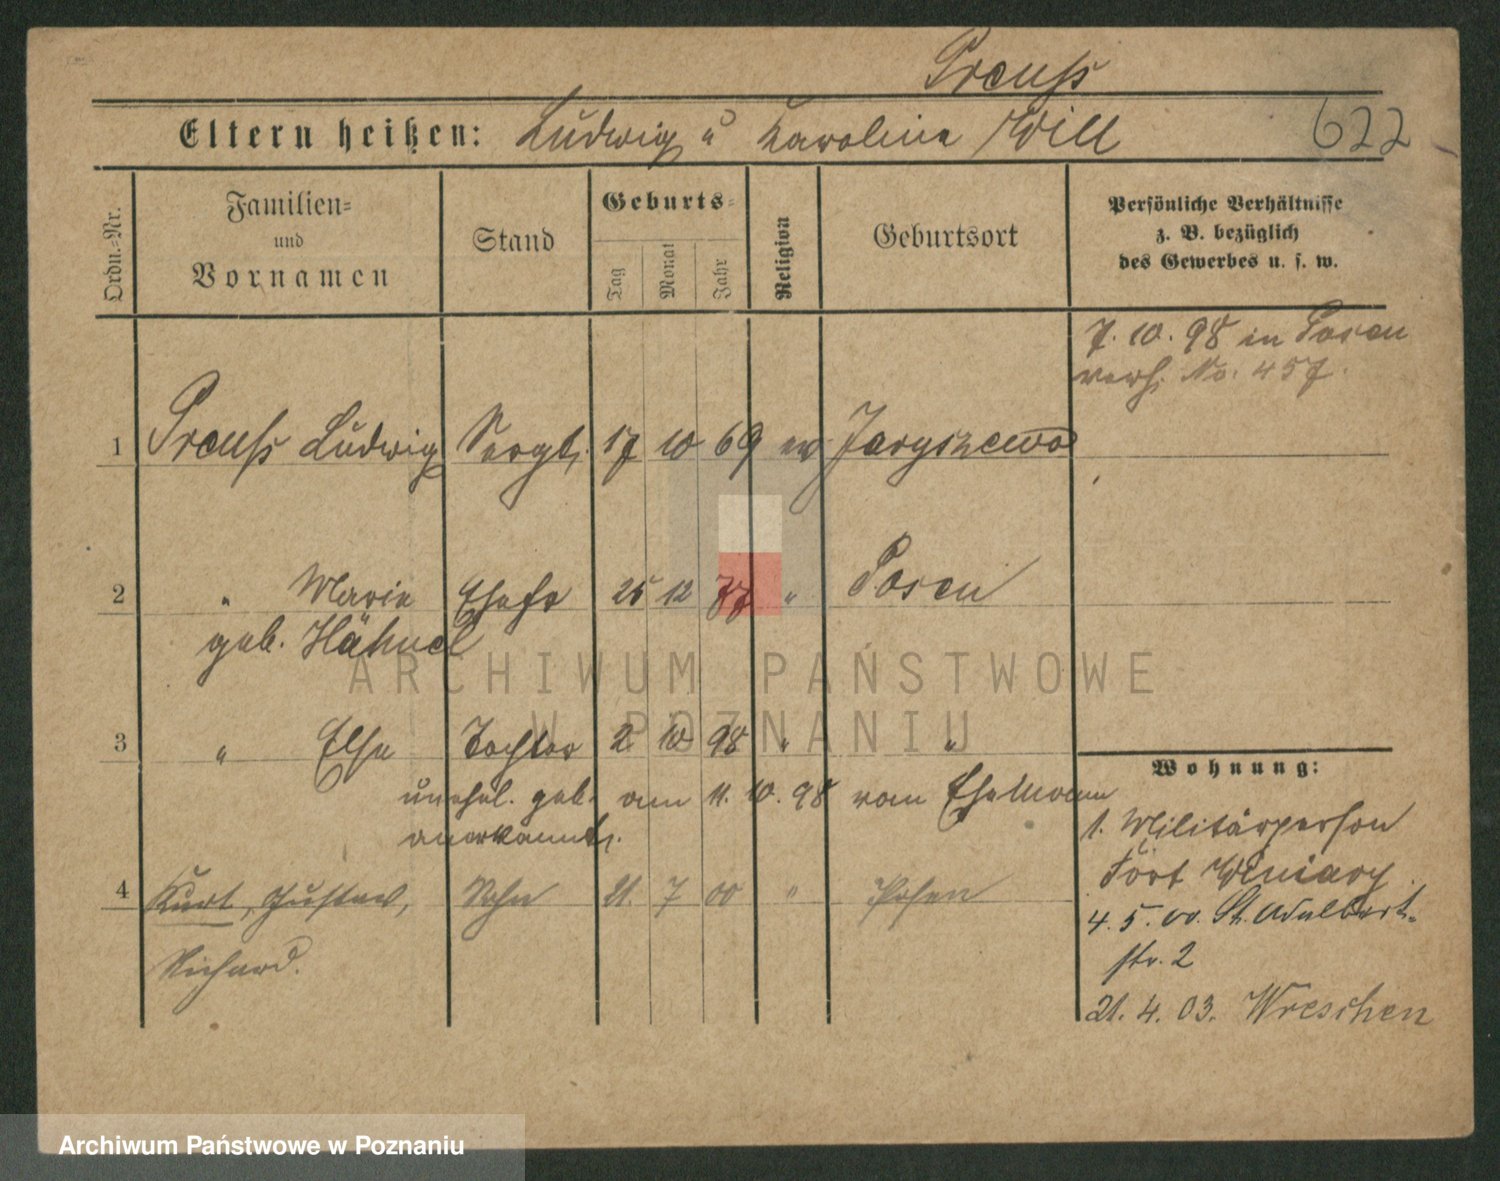 Preuß
Eltern heißen: Ludwig u Karolina Will
622
Ordn.-Nr.
Familien-
und
Vornamen
Stand
Geburts-
Tag
Monat
Jahr
Religion
Geburtsort
Persönliche Verhältnisse
z. B. bezüglich
des Gewerbes u. s. w.
7. 10. 98 in Posen
verh. No. 457.
1 Preuß Ludwig Sergt. 17 10 69 ev Jargszewo
2 " Marie Ehefr 25 12 77 " Posen
geb. Hähnel
3 " Else Tochter 2 10 98 " "
unehel. geb. am 11. 10. 98 vom Ehemann
anerkannt.
4 Kurt, Gustav, Sohn 21. 7 00 " Posen
Richard.
Wohnung:
1. Militärperson
Fort Winiary
4. 5. 00. St. Adalbert-
str. 2
21. 4. 03. Wreschen
ARCHIWUM PAŃSTWOWE
W POZNANIU
Archiwum Państwowe w Poznaniu